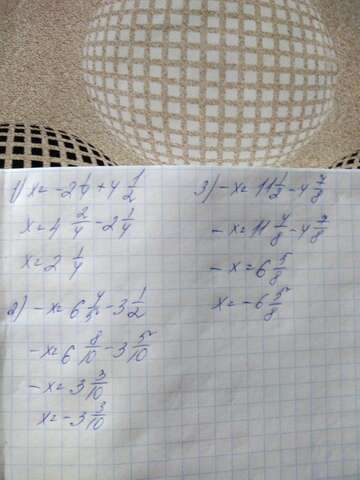 1) x = -2 1/4 + 4 1/2
x = 4 2/4 - 2 1/4
x = 2 1/4
2) -x = 6 4/5 - 3 1/2
-x = 6 8/10 - 3 5/10
-x = 3 3/10
x = -3 3/10
3) -x = 11 1/2 - 4 7/8
-x = 11 4/8 - 4 7/8
-x = 6 5/8
x = -6 5/8